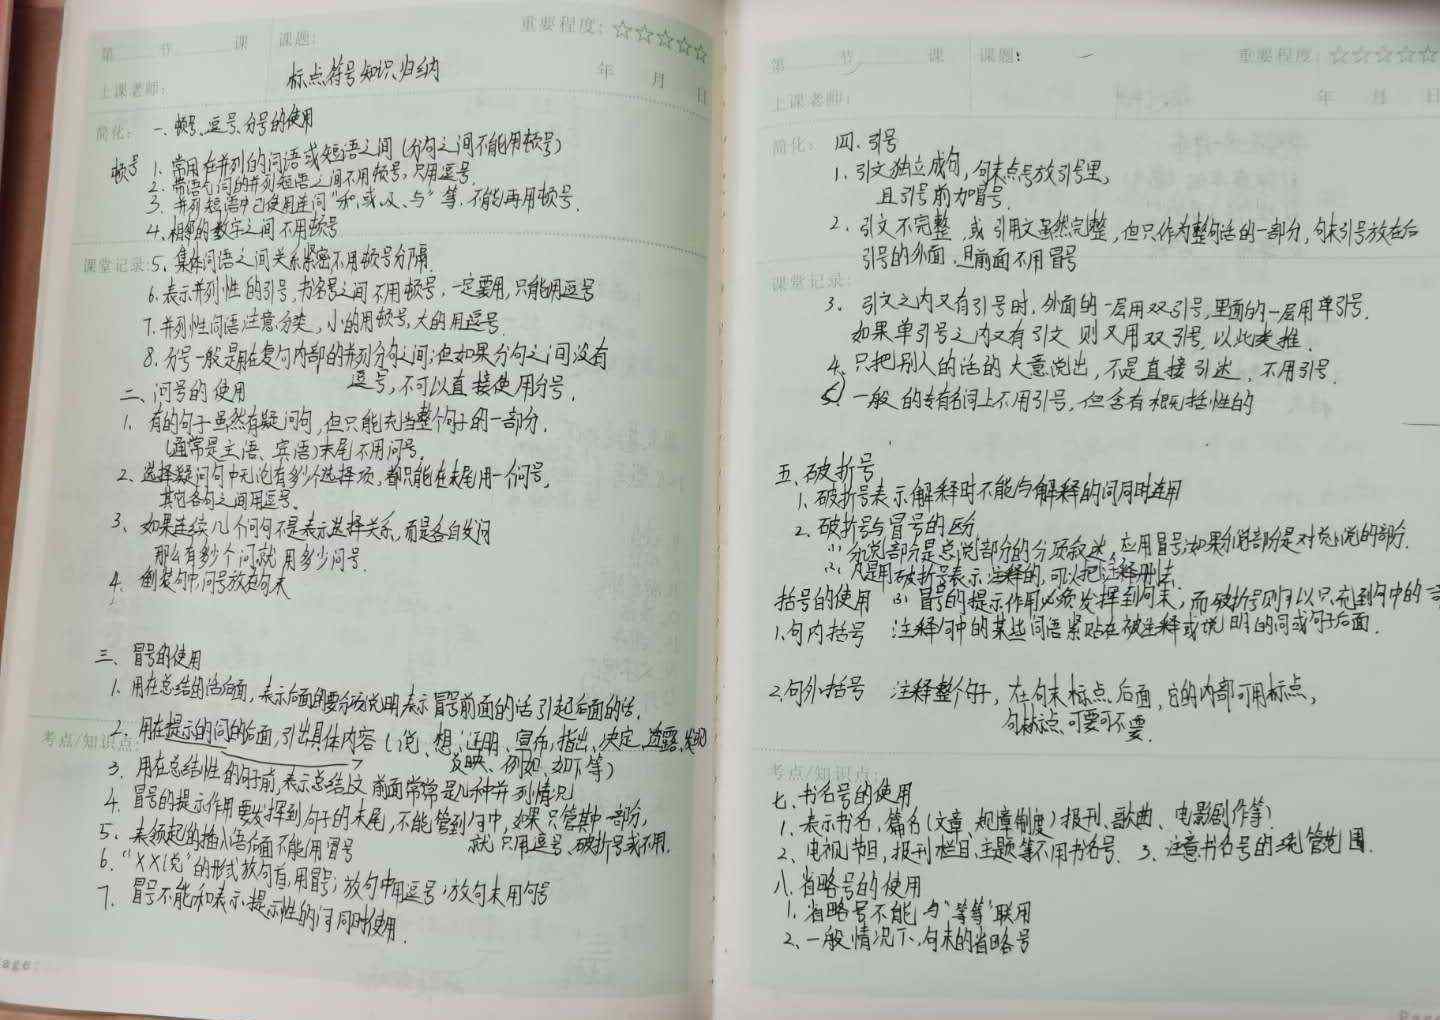 第 节 课 课题: 重要程度: ☆☆☆☆☆
标点符号知识归纳
上课老师: 年 月 日
简化: 一、顿号、逗号、分号的使用
顿号 1. 常用在并列的词语或短语之间 (分句之间不能用顿号)
2. 常语句间的并列短语之间不用顿号,只用逗号.
3. 并列短语中已使用连词“和、或、及、与”等,不能再用顿号.
4. 相邻的数字之间不用顿号
课堂记录: 5. 集体词语之间关系紧密不用顿号分隔.
6. 表示并列性的引号,书名号之间不用顿号,一定要用,只能用逗号
7. 并列性词语注意分类,小的用顿号,大的用逗号.
8. 分号一般是用在复句内部的并列分句之间;但如果分句之间没有
逗号,不可以直接使用分号.
二、问号的使用
1. 有的句子虽然有疑问句,但只能充当整个句子的一部分.
(通常是主语、宾语)末尾不用问号.
2. 选择疑问句中无论有多少个选择项,都只能在末尾用一个问号,
其它各句之间用逗号.
3. 如果连续几个问句不是表示选择关系,而是各自发问
那么有多少个问就用多少问号.
4. 倒装句中,问号放在句末
三、冒号的使用
1. 用在总结的话后面,表示后面的要分项说明表示冒号前面的话引起后面的话.
2. 用在提示的词的后面,引出具体内容(说、想、证明、宣布,指出、决定、透露、发现
考点/知识点: 反映、例如、如下等)
3. 用在总结性的句子前,表示总结上文 前面常常是几种并列情况
4. 冒号的提示作用要发挥到句子的末尾,不能管到句中,如果只管其中一部分,
就只用逗号、破折号或不用.
5. 表领起的插入语后面不能用冒号
6. “XX说”的形式放句首,用冒号;放句中用逗号;放句末用句号
7. 冒号不能和表示提示性的词同时使用.
Page
第 节 课 课题: 重要程度: ☆☆☆☆☆
上课老师: 年 月 日
简化: 四、引号
1. 引文独立成句,句末点号放引号里,
且引号前加冒号.
2. 引文不完整,或引用文虽然完整,但只作为整句话的一部分,句末引号放在后
引号的外面,且前面不用冒号
课堂记录:
3. 引文之内又有引号时,外面的一层用双引号,里面的一层用单引号.
如果单引号之内又有引文 则又用双引号,以此类推.
4. 只把别人的话的大意说出,不是直接引述,不用引号.
5. 一般的专有名词上不用引号,但含有概括性的
五、破折号
1. 破折号表示解释时不能与解释的词同时连用
2. 破折号与冒号的区分
(1) 分说部分是总说部分的分项叙述,应用冒号;如果分说部分是对总说的部分.
(2) 凡是用破折号表示注释的,可以把注释删去.
括号的使用 (3) 冒号的提示作用必须发挥到句末,而破折号则可以只充到句中的一
1. 句内括号 注释句中的某些词语紧贴在被注释或说明的词或句子后面.
2. 句外括号 注释整个句子,在句末标点后面,它的内部可用标点,
句末标点可要可不要.
考点/知识点:
七、书名号的使用
1. 表示书名、篇名(文章、规章制度)报刊、歌曲、电影剧作等)
2. 电视节目,报刊栏目、主题等不用书名号、 3、注意书名号的管范围.
八、省略号的使用
1. 省略号不能与“等等”联用
2. 一般情况下,句末的省略号
Page